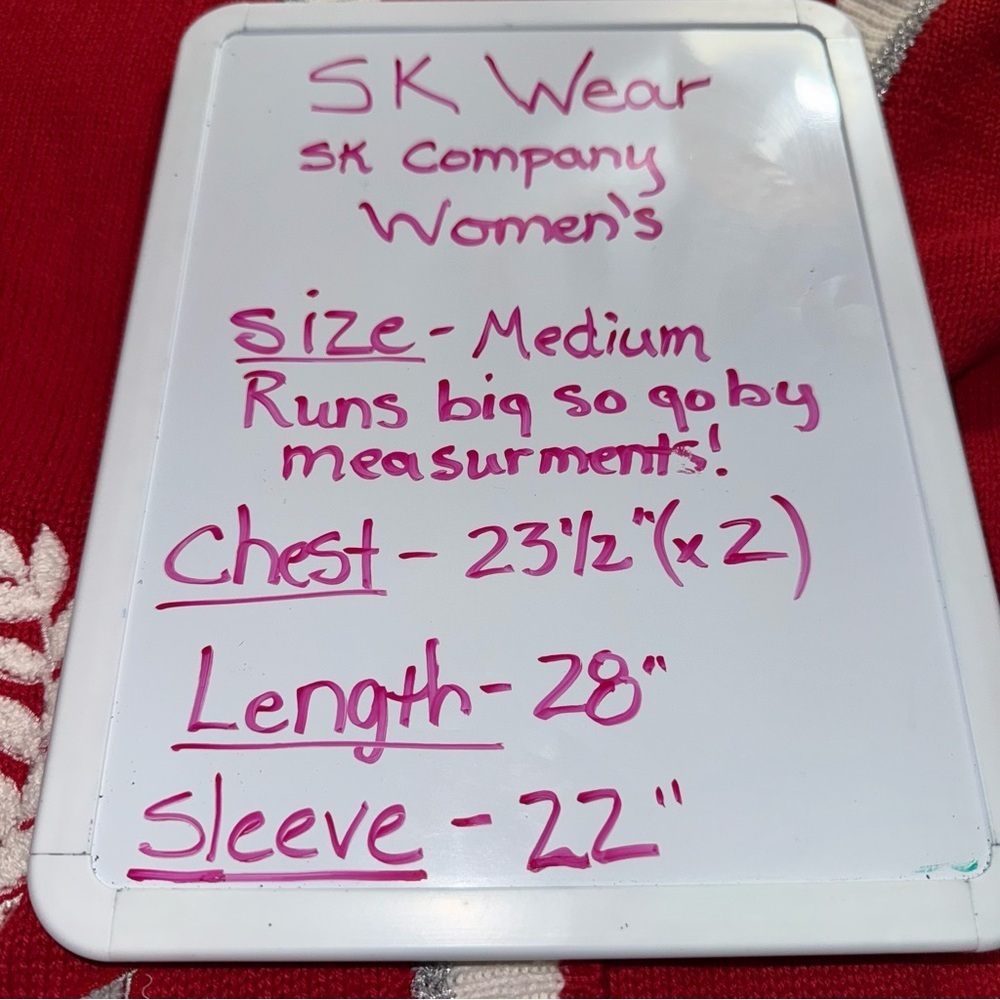 SK Wear
SK Company
Women's
Size - Medium
Runs big so go by
measurments!
Chest - 23 1/2" (x2)
Length - 28"
Sleeve - 22"